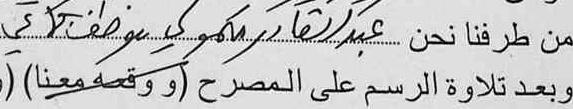 من طرفنا نحن عبد القادر مكموكي موظف
وبعد تلاوة الرسم على المصرح (و وقعه معنا) (و